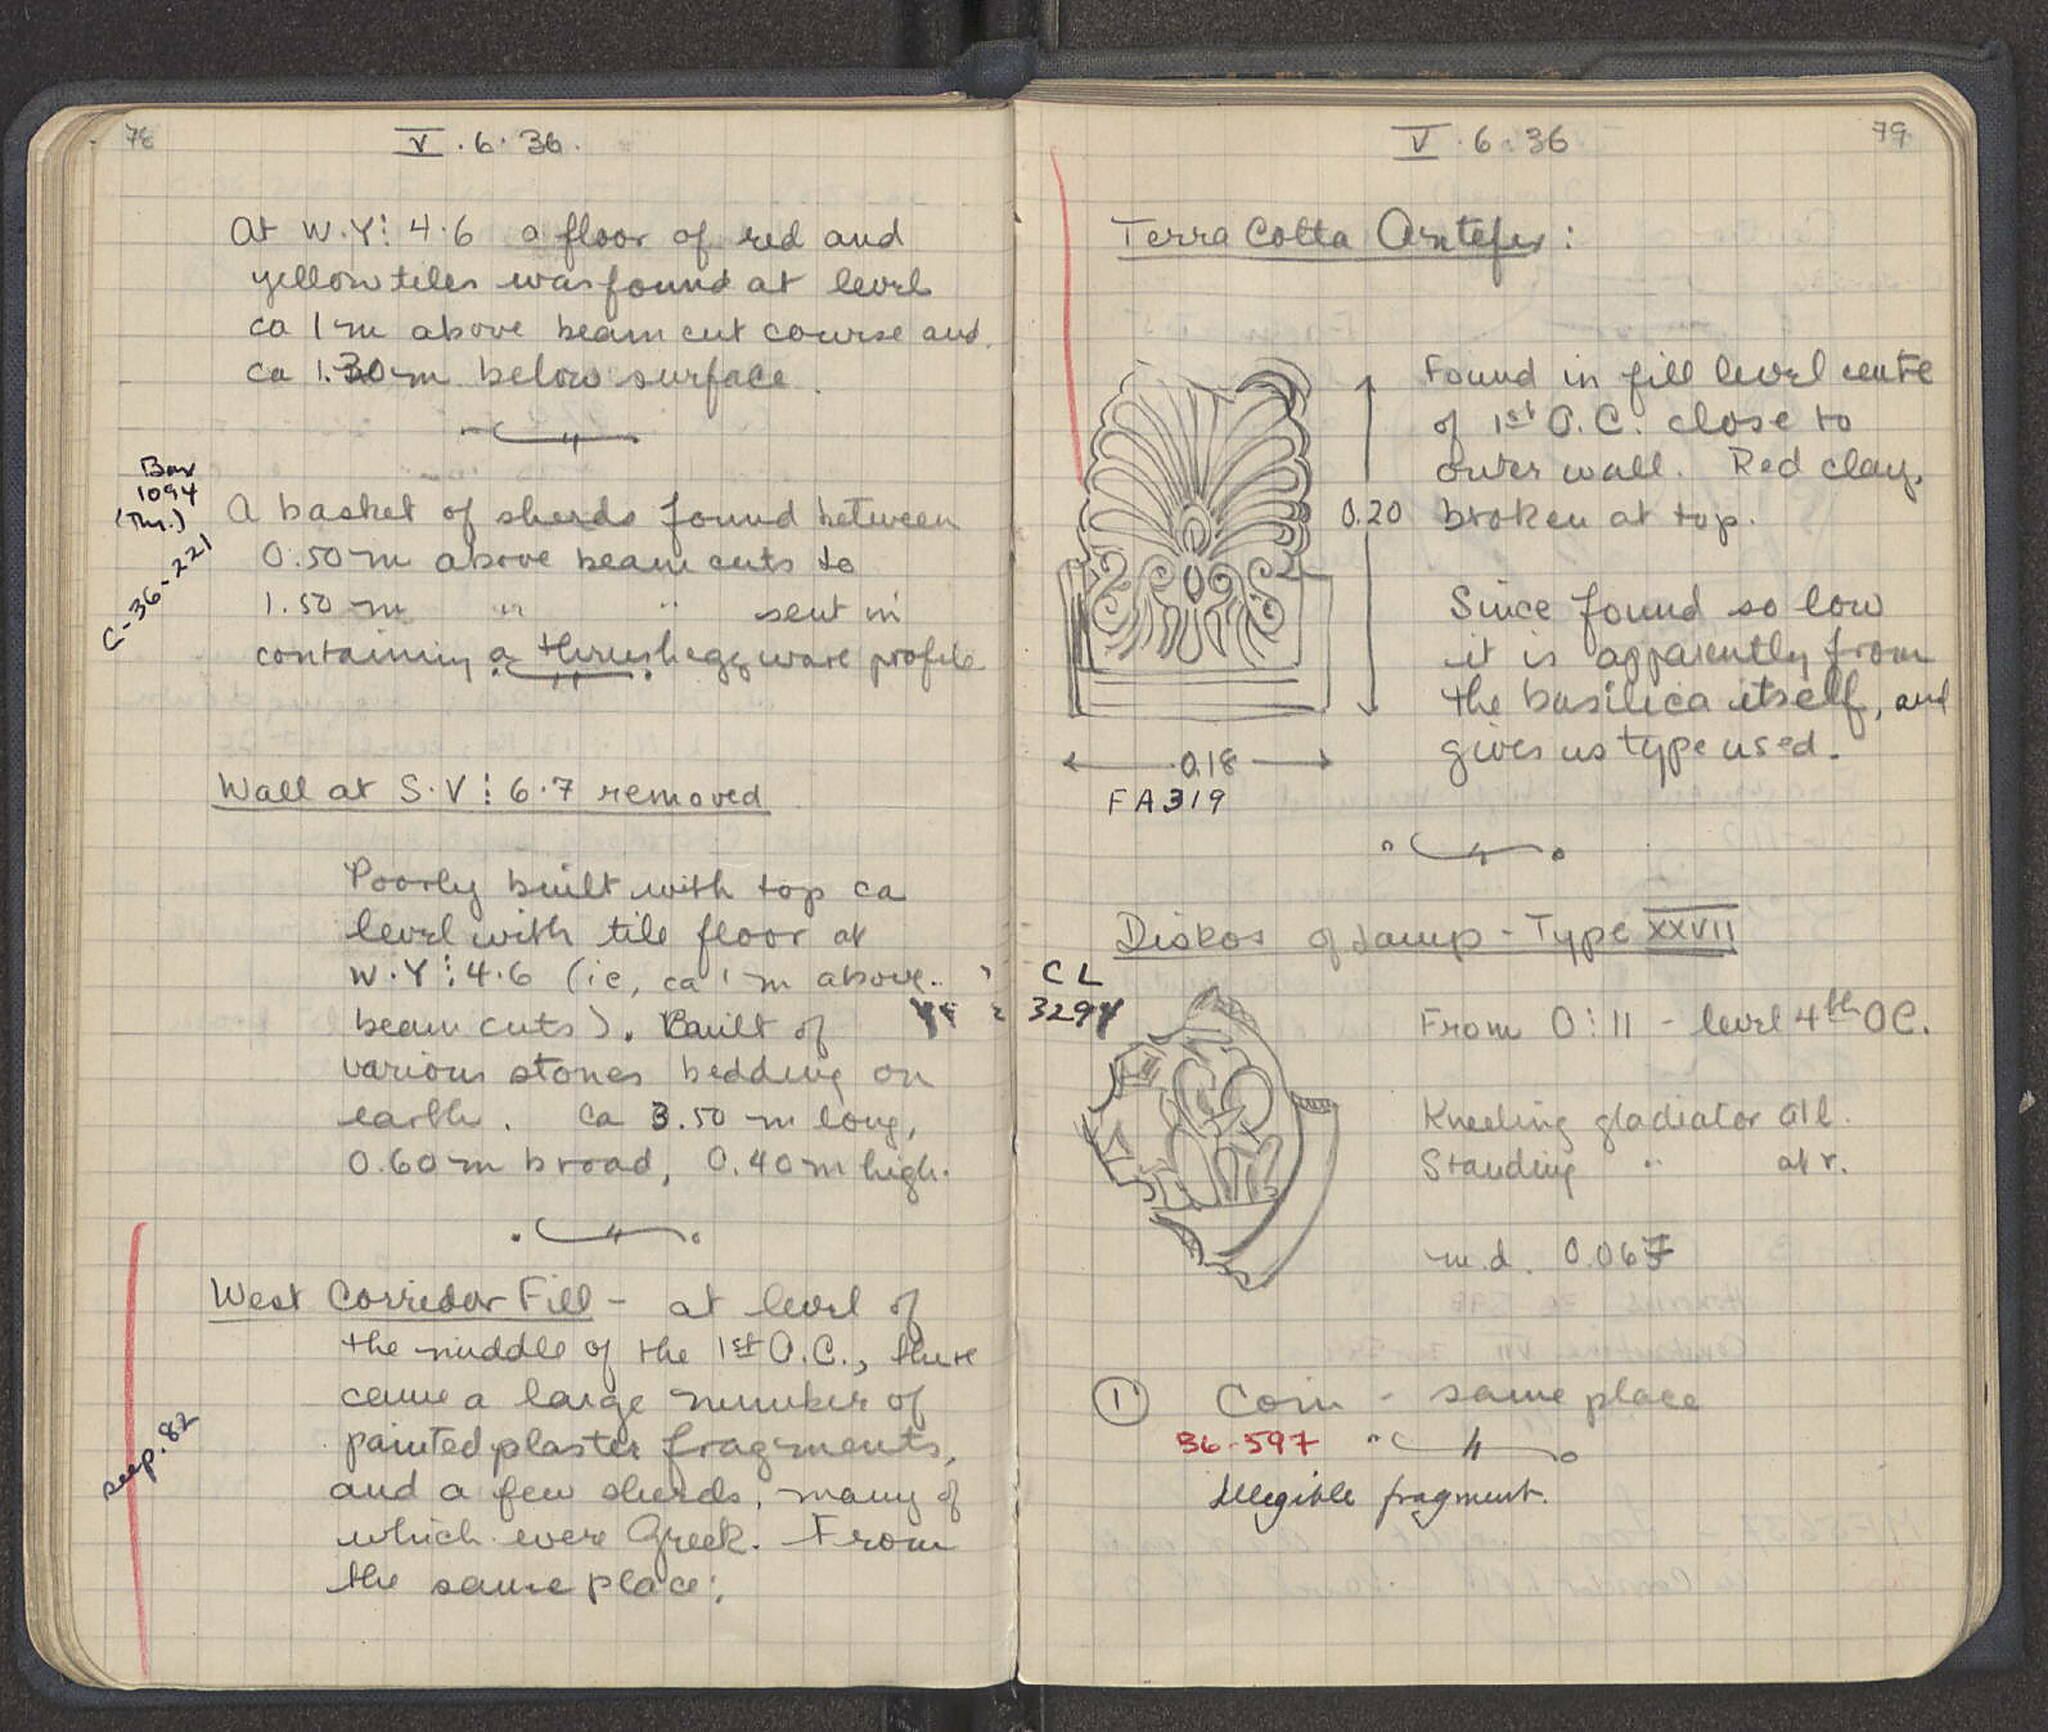 78
V. 6. 36.
At W.Y⋮ 4.6 a floor of red and
yellow tiles was found at level
ca 1 m above beam cut course and
ca 1.30 m below surface.
Box
1094
(Thr.)
C-36-221
A basket of sherds found between
0.50 m above beam cuts to
1.50 m " " sent in
containing a thrush egg ware profile
Wall at S.V⋮ 6.7 removed
Poorly built with top ca
level with tile floor at
W.Y⋮ 4.6 (ie, ca 1 m above
beam cuts). Built of
various stones bedding on
earth. Ca 3.50 m long,
0.60 m broad, 0.40 m high.
West Corridor Fill - at level of
the middle of the 1st O.C., there
came a large number of
painted plaster fragments,
and a few sherds, many of
which were Greek. From
the same place:
see p. 82
V. 6. 36
79
Terra Cotta Antefix:
Found in fill level centre
of 1st O.C. close to
outer wall. Red clay,
broken at top.
0.20
Since found so low
it is apparently from
the basilica itself, and
gives us type used.
0.18
FA 319
Diskos of Lamp - Type XXVII
CL
3294
From O⋮11 - level 4th OC.
Kneeling gladiator at l.
Standing " at r.
m.d. 0.067
1 Coin - same place
36-597
Illegible fragment.